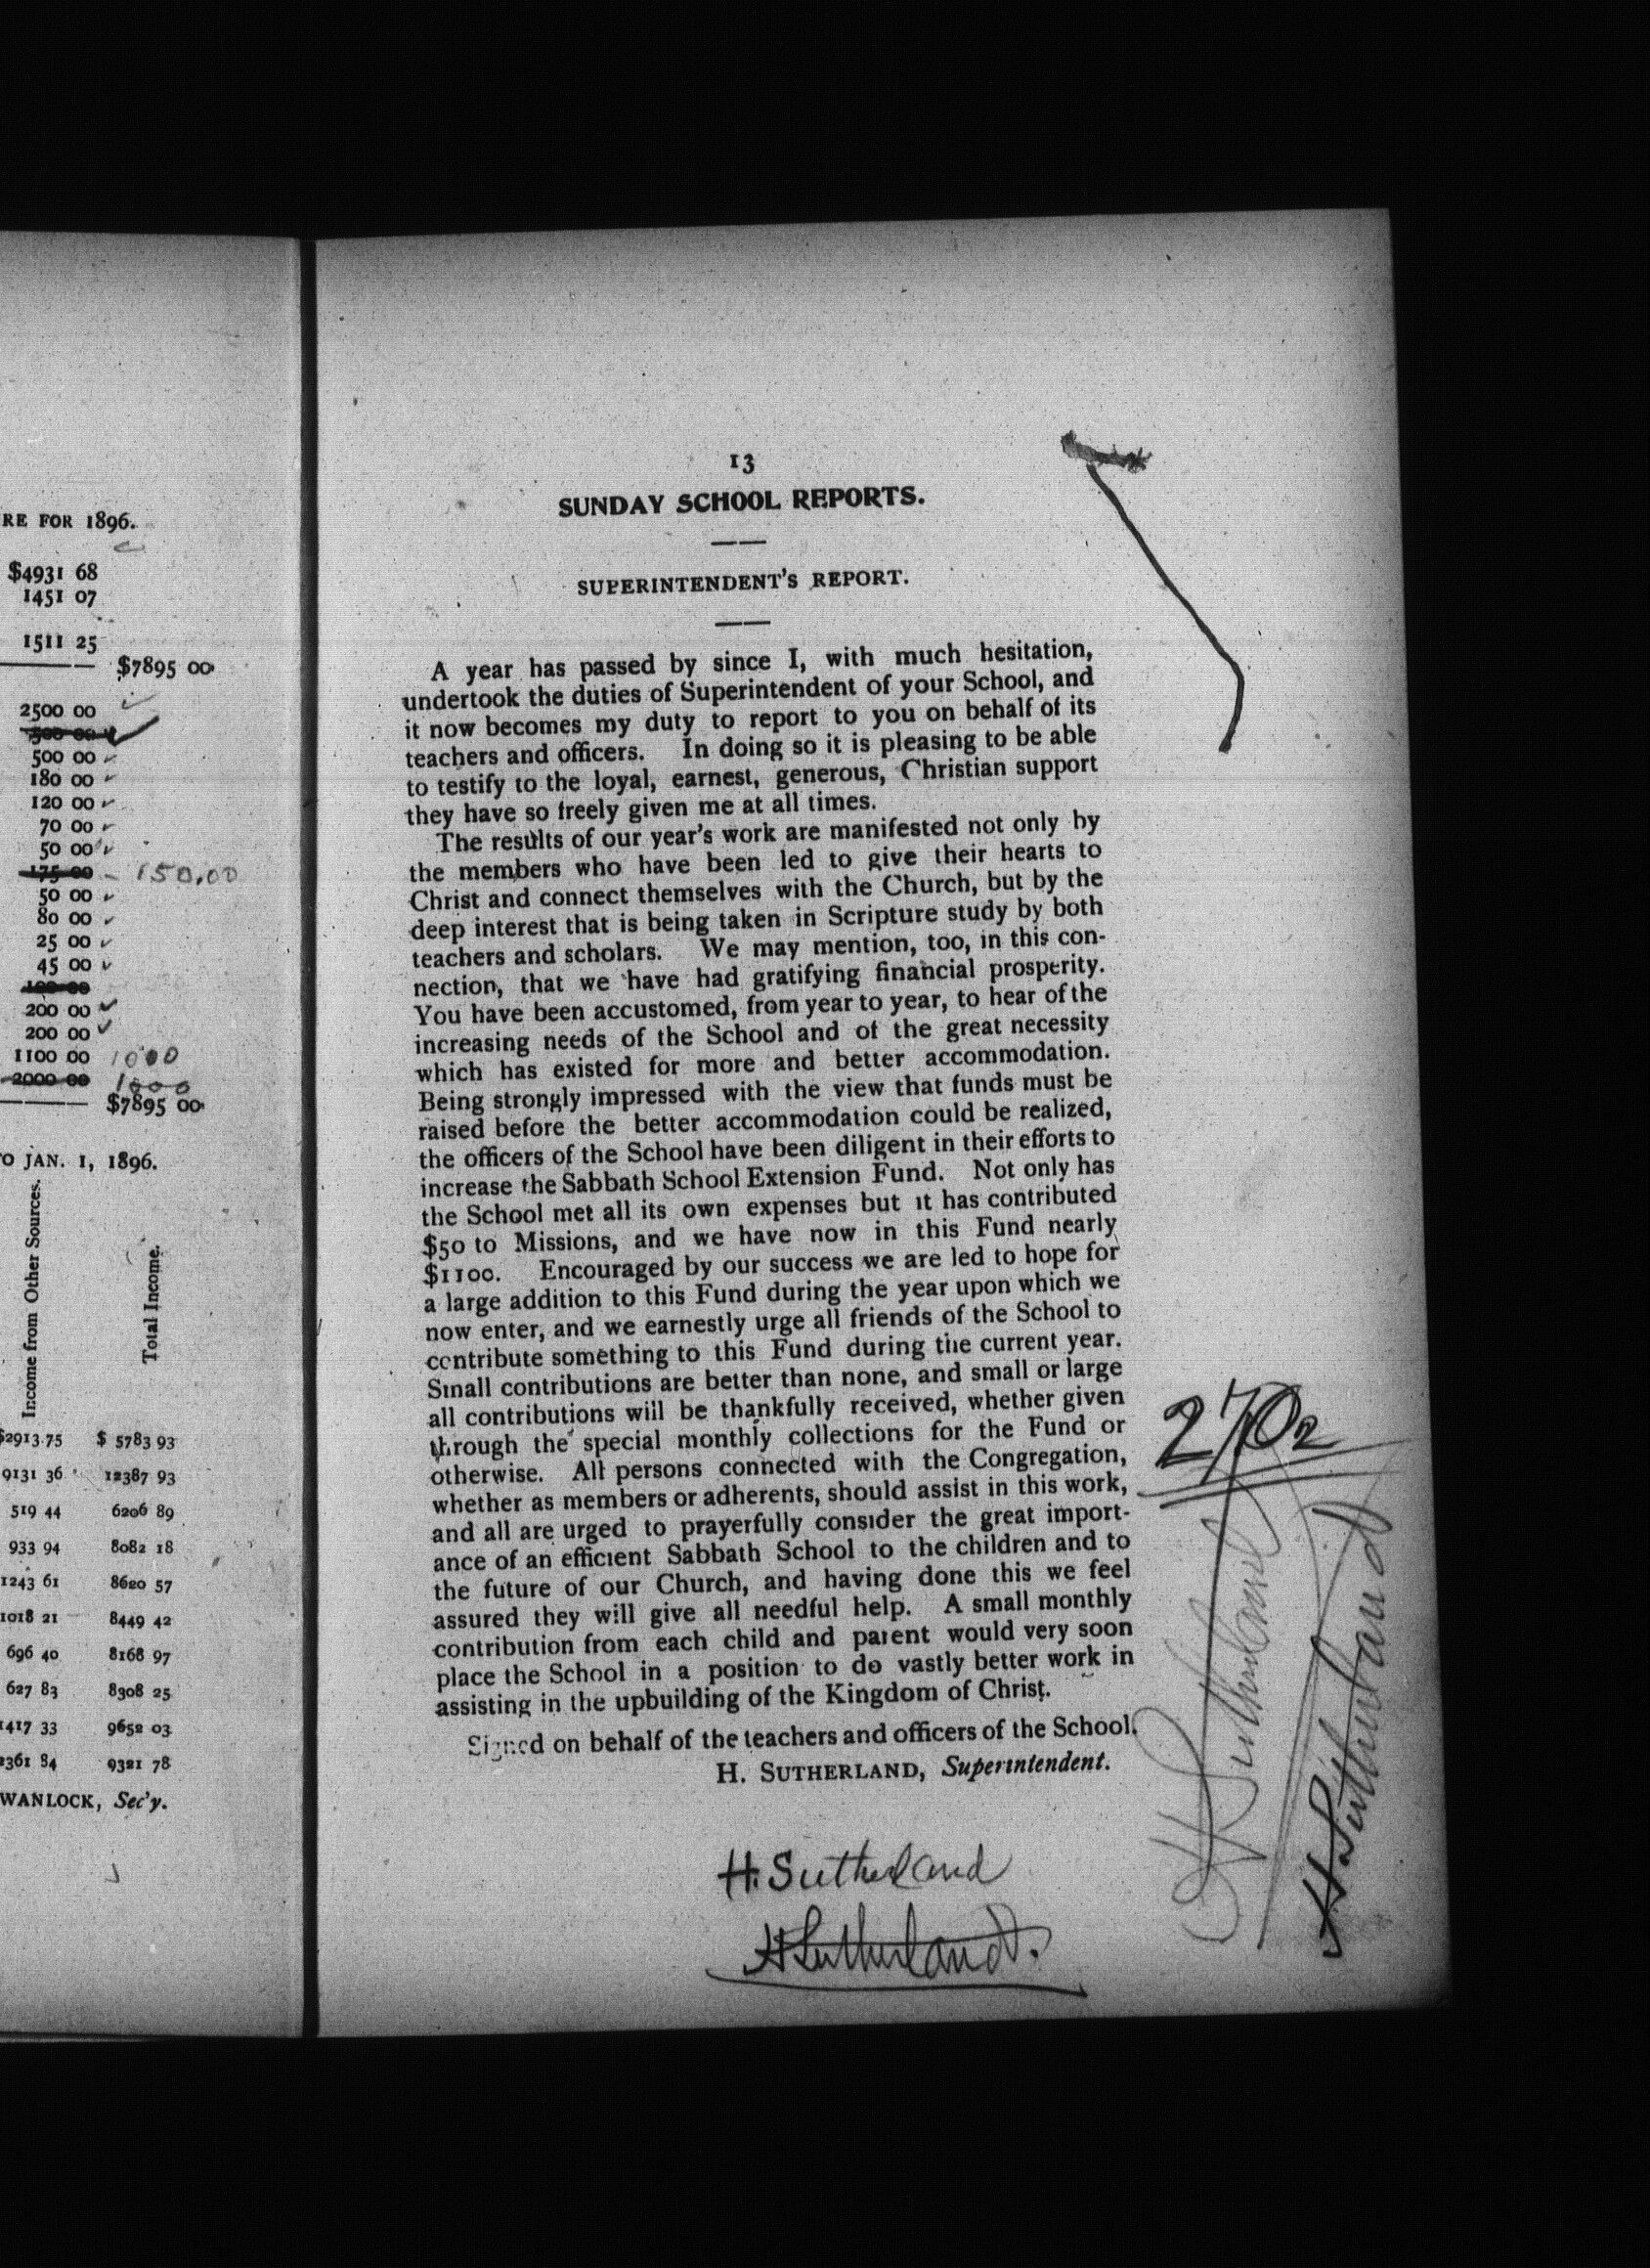 RE FOR 1896.
$4931 68
1451 07
1511 25
$7895 00
2500 00
500 00
500 00
180 00
120 00
70 00
50 00
175 00 - 150.00
50 00
80 00
25 00
45 00
100 00
200 00
200 00
1100 00 1000
2000 00 1000
$7895 00
O JAN. 1, 1896.
Income from Other Sources.
Total Income.
$2913.75 $ 5783 93
9131 36 12387 93
519 44 6206 89
933 94 8082 18
1243 61 8620 57
1018 21 8449 42
696 40 8168 97
627 83 8308 25
1417 33 9652 03
1361 84 9321 78
WANLOCK, Sec'y.
13
SUNDAY SCHOOL REPORTS.
SUPERINTENDENT'S REPORT.
A year has passed by since I, with much hesitation,
undertook the duties of Superintendent of your School, and
it now becomes my duty to report to you on behalf of its
teachers and officers. In doing so it is pleasing to be able
to testify to the loyal, earnest, generous, Christian support
they have so freely given me at all times.
The results of our year's work are manifested not only by
the members who have been led to give their hearts to
Christ and connect themselves with the Church, but by the
deep interest that is being taken in Scripture study by both
teachers and scholars. We may mention, too, in this con-
nection, that we have had gratifying financial prosperity.
You have been accustomed, from year to year, to hear of the
increasing needs of the School and of the great necessity
which has existed for more and better accommodation.
Being strongly impressed with the view that funds must be
raised before the better accommodation could be realized,
the officers of the School have been diligent in their efforts to
increase the Sabbath School Extension Fund. Not only has
the School met all its own expenses but it has contributed
$50 to Missions, and we have now in this Fund nearly
$1100. Encouraged by our success we are led to hope for
a large addition to this Fund during the year upon which we
now enter, and we earnestly urge all friends of the School to
contribute something to this Fund during the current year.
Small contributions are better than none, and small or large
all contributions will be thankfully received, whether given
through the special monthly collections for the Fund or
otherwise. All persons connected with the Congregation,
whether as members or adherents, should assist in this work,
and all are urged to prayerfully consider the great import-
ance of an efficient Sabbath School to the children and to
the future of our Church, and having done this we feel
assured they will give all needful help. A small monthly
contribution from each child and parent would very soon
place the School in a position to do vastly better work in
assisting in the upbuilding of the Kingdom of Christ.
Signed on behalf of the teachers and officers of the School.
H. SUTHERLAND, Superintendent.
H. Sutherland
H Sutherland.
H Sutherland
H Sutherland